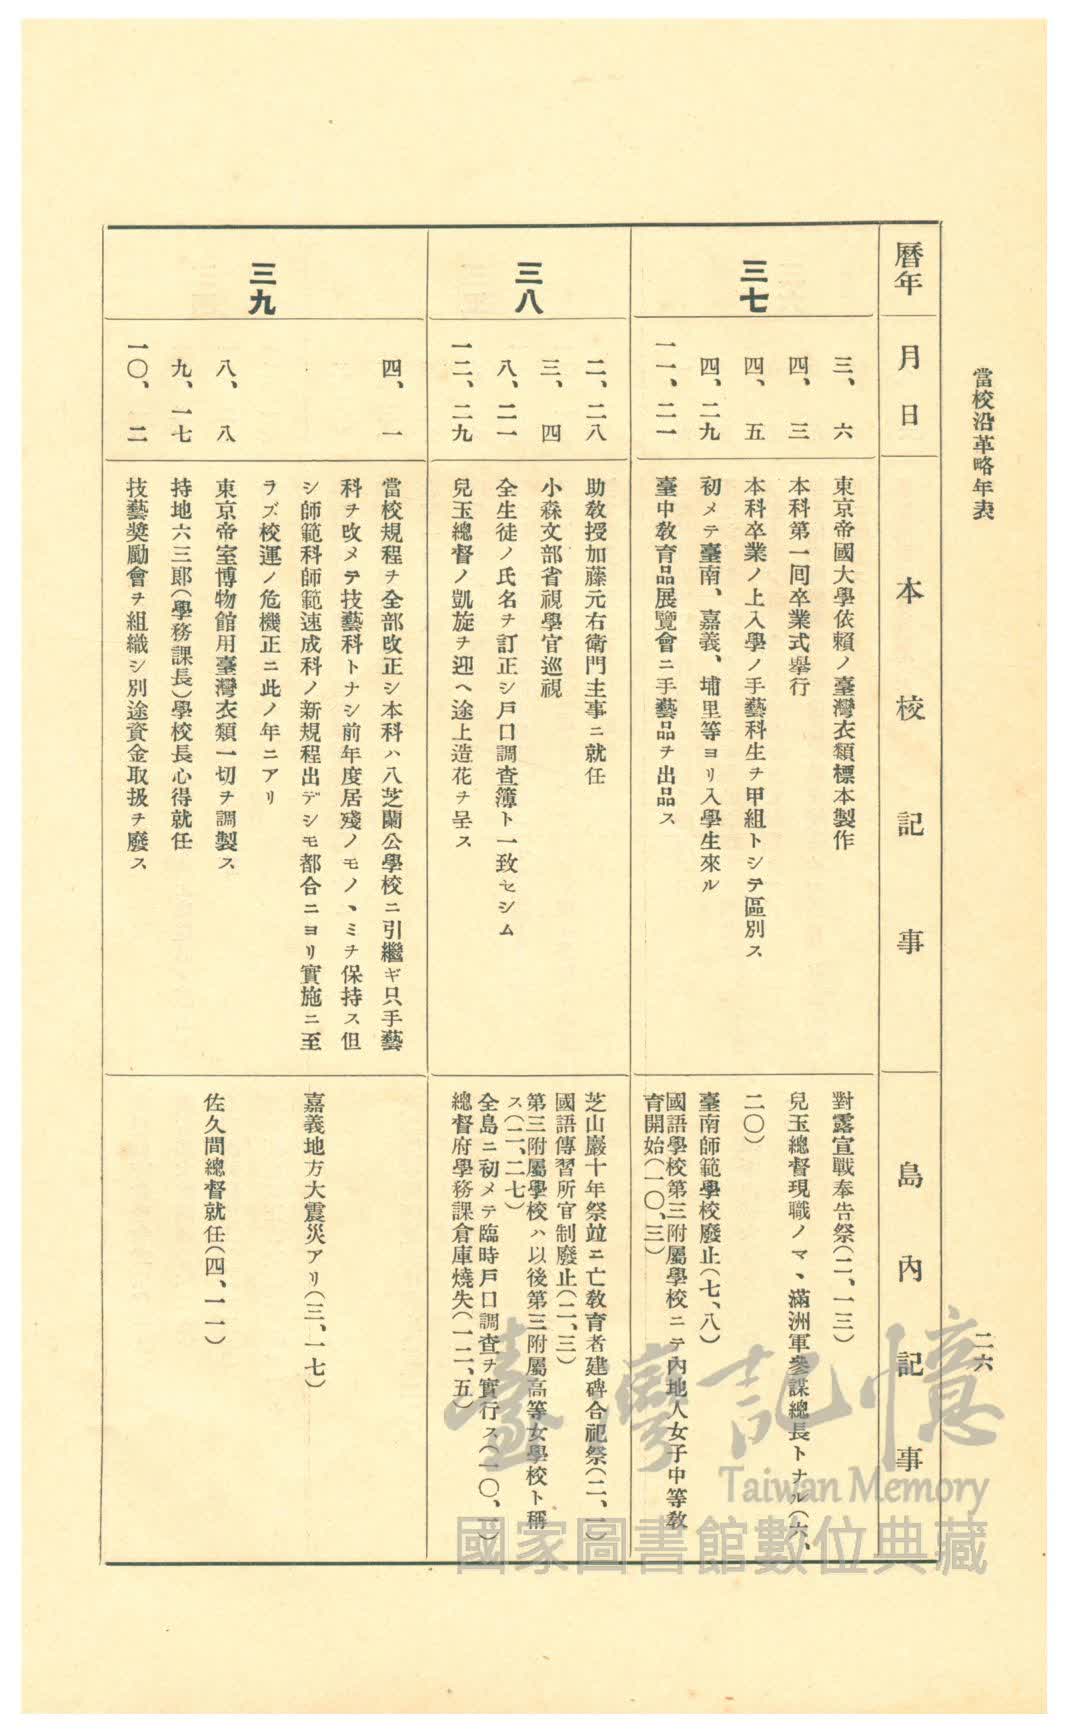 當校沿革略年表
二六
曆年
月日
本校記事
島內記事
三七
三、六
東京帝國大學依賴ノ臺灣衣類標本製作
四、三
本科第一回卒業式擧行
四、五
本科卒業ノ上入學ノ手藝科生ヲ甲組トシテ區別ス
四、二九
初メテ臺南、嘉義、埔里等ヨリ入學生來ル
一一、二一
臺中敎育品展覽會ニ手藝品ヲ出品ス
對露宣戰奉告祭(二、一三)
兒玉總督現職ノマヽ滿洲軍參謀總長トナル(六、
二〇)
臺南師範學校廢止(七、八)
國語學校第三附屬學校ニテ內地人女子中等敎
育開始(一〇、三)
三八
二、二八
助敎授加藤元右衞門主事ニ就任
三、四
小森文部省視學官巡視
八、二一
全生徒ノ氏名ヲ訂正シ戶口調查簿ト一致セシム
一二、二九
兒玉總督ノ凱旋ヲ迎ヘ途上造花ヲ呈ス
芝山巖十年祭竝ニ亡敎育者建碑合祀祭(二、一)
國語傳習所官制廢止(二、三)
第三附屬學校ハ以後第三附屬高等女學校ト稱
ス(二、二七)
全島ニ初メテ臨時戶口調查ヲ實行ス(一〇、一)
總督府學務課倉庫燒失(一二、五)
三九
四、一
當校規程ヲ全部改正シ本科ハ八芝蘭公學校ニ引繼ギ只手藝
科ヲ改メテ技藝科トナシ前年度居殘ノモノヽミヲ保持ス但
シ師範科師範速成科ノ新規程出デシモ都合ニヨリ實施ニ至
ラズ校運ノ危機正ニ此ノ年ニアリ
八、八
東京帝室博物館用臺灣衣類一切ヲ調製ス
九、一七
持地六三郎(學務課長)學校長心得就任
一〇、二
技藝奬勵會ヲ組織シ別途資金取扱ヲ廢ス
嘉義地方大震災アリ(三、一七)
佐久間總督就任(四、一一)
臺灣記憶
Taiwan Memory
國家圖書館數位典藏